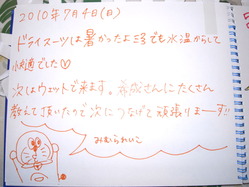 2010年7月4日(日)
ドライスーツは暑かったよ でも水温からして
快適でした♡
次はウェットで来ます。 さんにたくさん
教えて頂いたので次につなげて頑張りまーす!!
みむられいこ